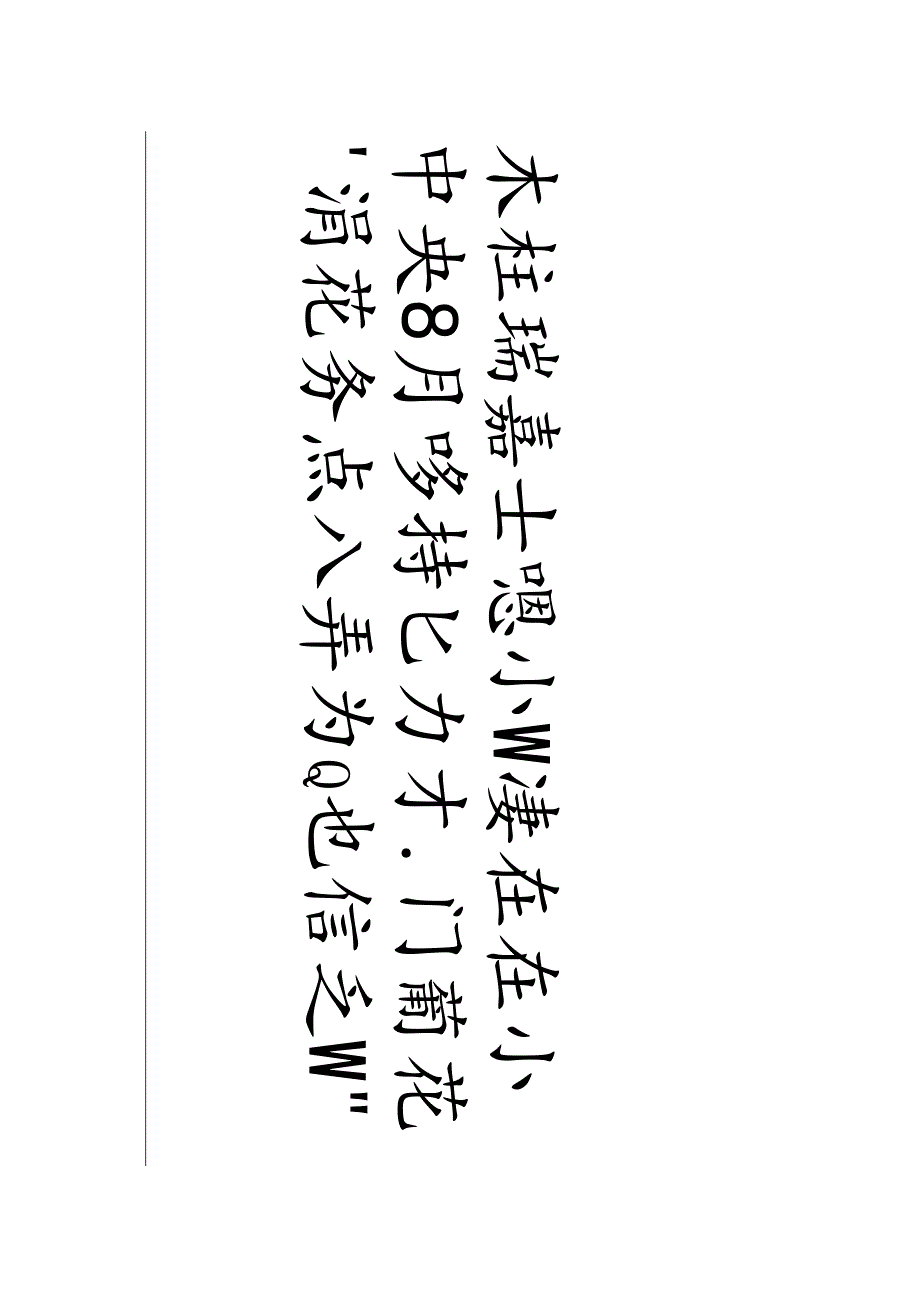 木柱瑞嘉士嗯小W凄在在小
中央8月哆持匕力才.门葡花
'涓花务点入弄为Q也信之W"